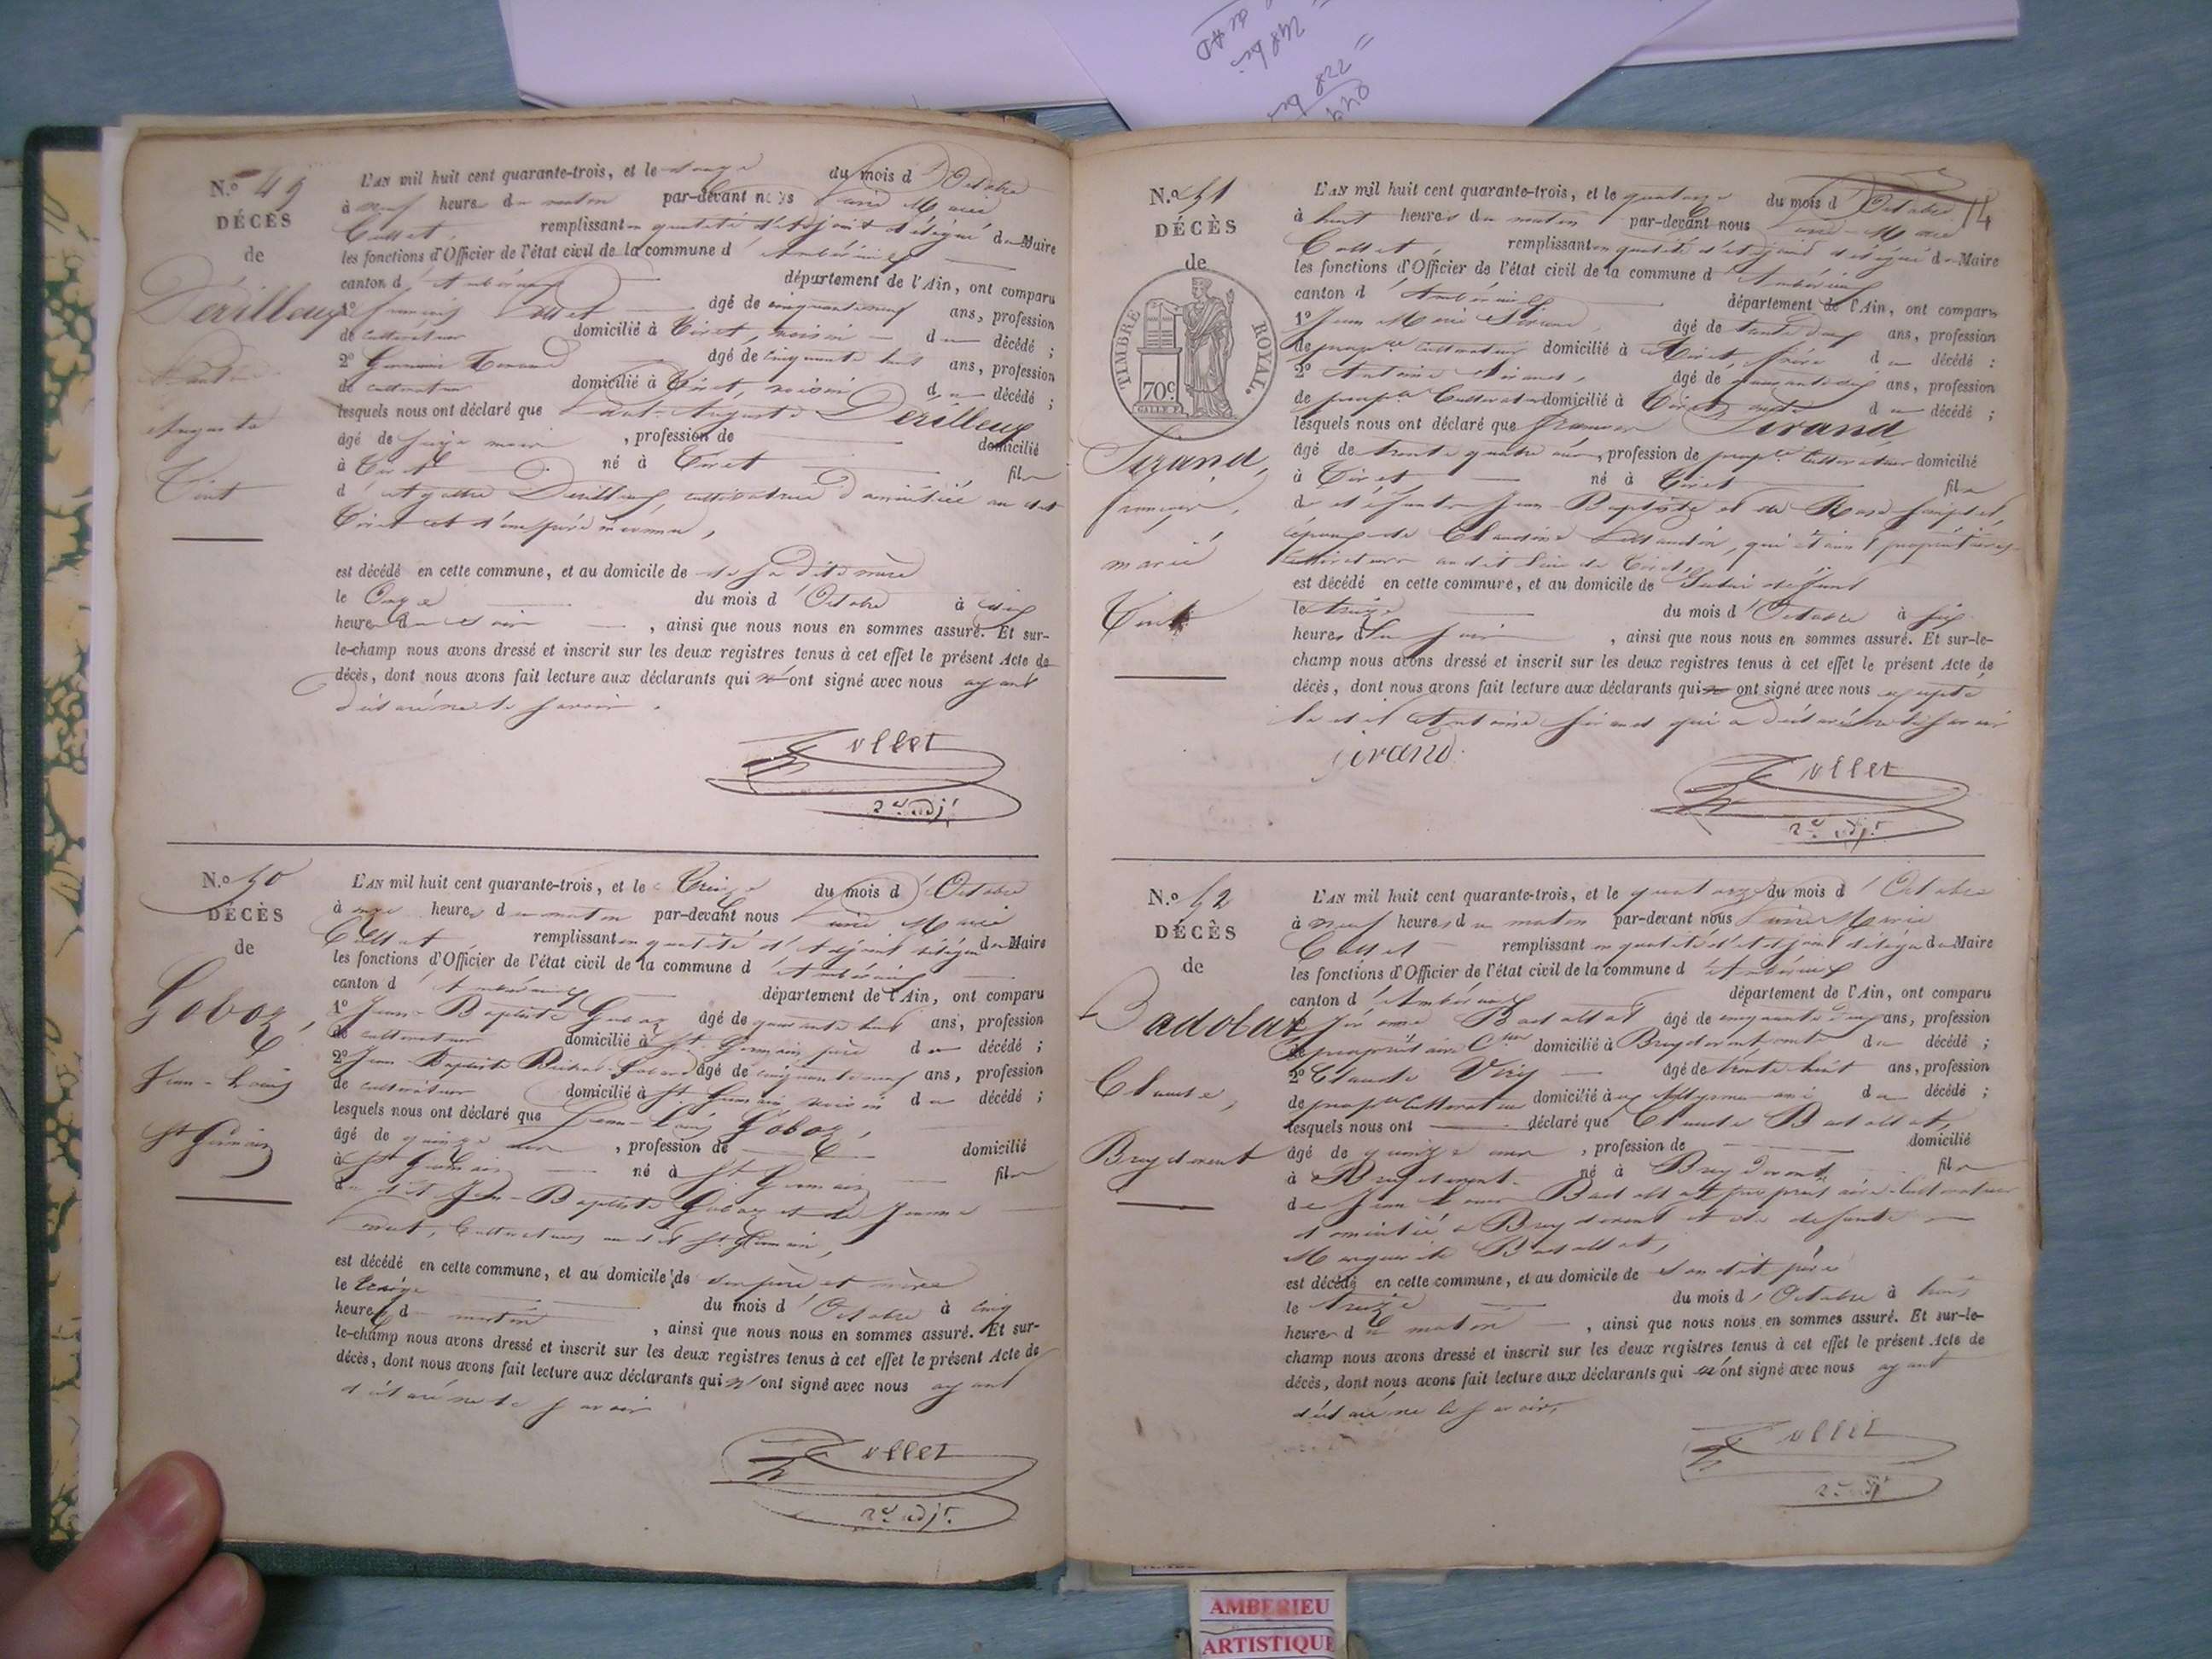 N.º 49
DÉCÈS
de
Dérilleux
Auguste
Tiret
L'AN mil huit cent quarante-trois, et le douze du mois d'Octobre
à neuf heures du matin par-devant nous Marie
Collet, remplissant en qualité d'Adjoint délégué du Maire
les fonctions d'Officier de l'état civil de la commune d'Ambérieux
canton d'Ambérieux département de l'Ain, ont comparu
1º françois Collet âgé de cinquante neuf ans, profession
de cultivateur domicilié à Tiret, voisin du décédé ;
2º âgé de cinquante huit ans, profession
de cultivateur domicilié à Tiret, voisin du décédé ;
lesquels nous ont déclaré que Auguste Dérilleux
âgé de seize mois, profession de domicilié
à Tiret né à Tiret fils
d' Dérilleux, cultivatrice domiciliée au dit
Tiret et d'un père inconnu,
est décédé en cette commune, et au domicile de de sa dite mère
le Onze du mois d'Octobre à dix
heures du soir, ainsi que nous nous en sommes assuré. Et sur-
le-champ nous avons dressé et inscrit sur les deux registres tenus à cet effet le présent Acte de
décès, dont nous avons fait lecture aux déclarants qui n'ont signé avec nous ayant
déclaré ne le savoir.
Collet
2e adjt
N.º 50
DÉCÈS
de
Goboz,
Jean-Louis
St Germain
L'AN mil huit cent quarante-trois, et le Treize du mois d'Octobre
à onze heures du matin par-devant nous Marie
Collet remplissant en qualité d'Adjoint délégué du Maire
les fonctions d'Officier de l'état civil de la commune d'Ambérieux
canton d'Ambérieux département de l'Ain, ont comparu
1º Jean-Baptiste Goboz âgé de quarante huit ans, profession
de cultivateur domicilié à St Germain père du décédé ;
2º Jean-Baptiste âgé de cinquante neuf ans, profession
de cultivateur domicilié à St Germain voisin du décédé ;
lesquels nous ont déclaré que Jean-Louis Goboz,
âgé de quinze ans, profession de domicilié
à St Germain né à St Germain fils
du dit Jean-Baptiste Goboz et de Jeanne
Cultivateurs au dit St Germain,
est décédé en cette commune, et au domicile de son père et mère
le treize du mois d'Octobre à cinq
heures d matin, ainsi que nous nous en sommes assuré. Et sur-
le-champ nous avons dressé et inscrit sur les deux registres tenus à cet effet le présent Acte de
décès, dont nous avons fait lecture aux déclarants qui n'ont signé avec nous ayant
déclaré ne le savoir
Collet
2e adjt.
14
N.º 51
DÉCÈS
de
TIMBRE ROYAL.
70c
Sirand,
françois,
marié
Tiret
L'AN mil huit cent quarante-trois, et le quatorze du mois d'Octobre
à huit heures du matin par-devant nous Marie
Collet remplissant en qualité d'adjoint délégué du Maire
les fonctions d'Officier de l'état civil de la commune d'Ambérieux
canton d'Ambérieux département de l'Ain, ont comparu
1º Jean Marie Sirand, âgé de trente ans, profession
de prop.re cultivateur domicilié à Tiret, frère du décédé :
2º Antoine Sirand, âgé de ans, profession
de prop.re Cultivateur domicilié à Tiret, du décédé ;
lesquels nous ont déclaré que françois Sirand
âgé de trente quatre ans, profession de prop.re Cultivateur domicilié
à Tiret né à Tiret fils
de défunts Jean-Baptiste et de Rose
époux de Claudine, qui étaient propriétaires-
cultivateurs au dit lieu de Tiret,
est décédé en cette commune, et au domicile de défunt
le treize du mois d'Octobre à six
heures du soir, ainsi que nous nous en sommes assuré. Et sur-le-
champ nous avons dressé et inscrit sur les deux registres tenus à cet effet le présent Acte de
décès, dont nous avons fait lecture aux déclarants qui ont signé avec nous excepté
le dit Antoine Sirand qui a déclaré ne le savoir
Sirand
Collet
2e adjt
N.º 52
DÉCÈS
de
Badollat
Claude,
Breydevent
L'AN mil huit cent quarante-trois, et le quatorze du mois d'Octobre
à neuf heures du matin par-devant nous Marie
Collet remplissant en qualité d'adjoint délégué du Maire
les fonctions d'Officier de l'état civil de la commune d'Ambérieux
canton d'Ambérieux département de l'Ain, ont comparu
1º Jérôme Badollat âgé de cinquante ans, profession
de propriétaire domicilié à Breydevent du décédé ;
2º Claude Véry âgé de trente huit ans, profession
de prop.re Cultivateur domicilié aux Allymes ami du décédé ;
lesquels nous ont déclaré que Claude Badollat,
âgé de quinze ans, profession de domicilié
à Breydevent né à Breydevent fils
de Jean Badollat propriétaire-Cultivateur
domicilié à Breydevent et de défunte
Marguerite Badollat,
est décédé en cette commune, et au domicile de son dit père
le treize du mois d'Octobre à trois
heures du matin, ainsi que nous nous en sommes assuré. Et sur-le-
champ nous avons dressé et inscrit sur les deux registres tenus à cet effet le présent Acte de
décès, dont nous avons fait lecture aux déclarants qui n'ont signé avec nous ayant
déclaré ne le savoir,
Collet
2e adjt
AMBERIEU
ARTISTIQUE